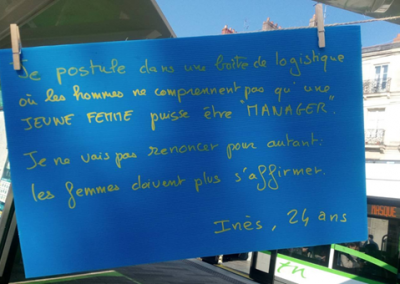 Je postule dans une boîte de logistique
où les hommes ne comprennent pas qu'une
JEUNE FEMME puisse être "MANAGER".
Je ne vais pas renoncer pour autant:
les femmes doivent plus s'affirmer.
Inès, 24 ans